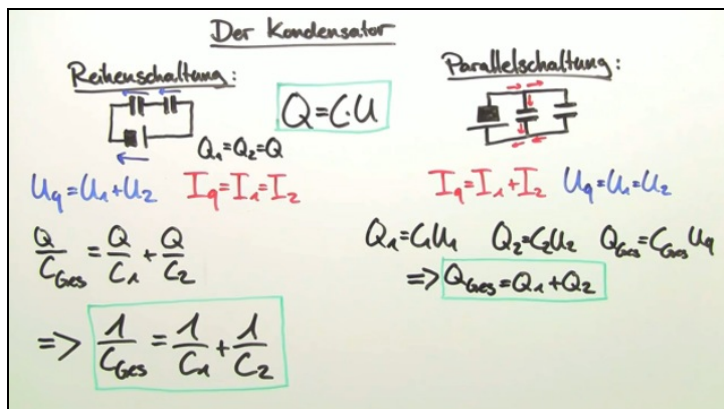 Der Kondensator
Reihenschaltung:
Q=C·U
Q₁=Q₂=Q
U_q=U₁+U₂ I_q=I₁=I₂
Q/C_Ges = Q/C₁ + Q/C₂
=> 1/C_Ges = 1/C₁ + 1/C₂
Parallelschaltung:
I_q=I₁+I₂ U_q=U₁=U₂
Q₁=C₁U₁ Q₂=C₂U₂ Q_Ges=C_Ges U_q
=> Q_Ges=Q₁+Q₂